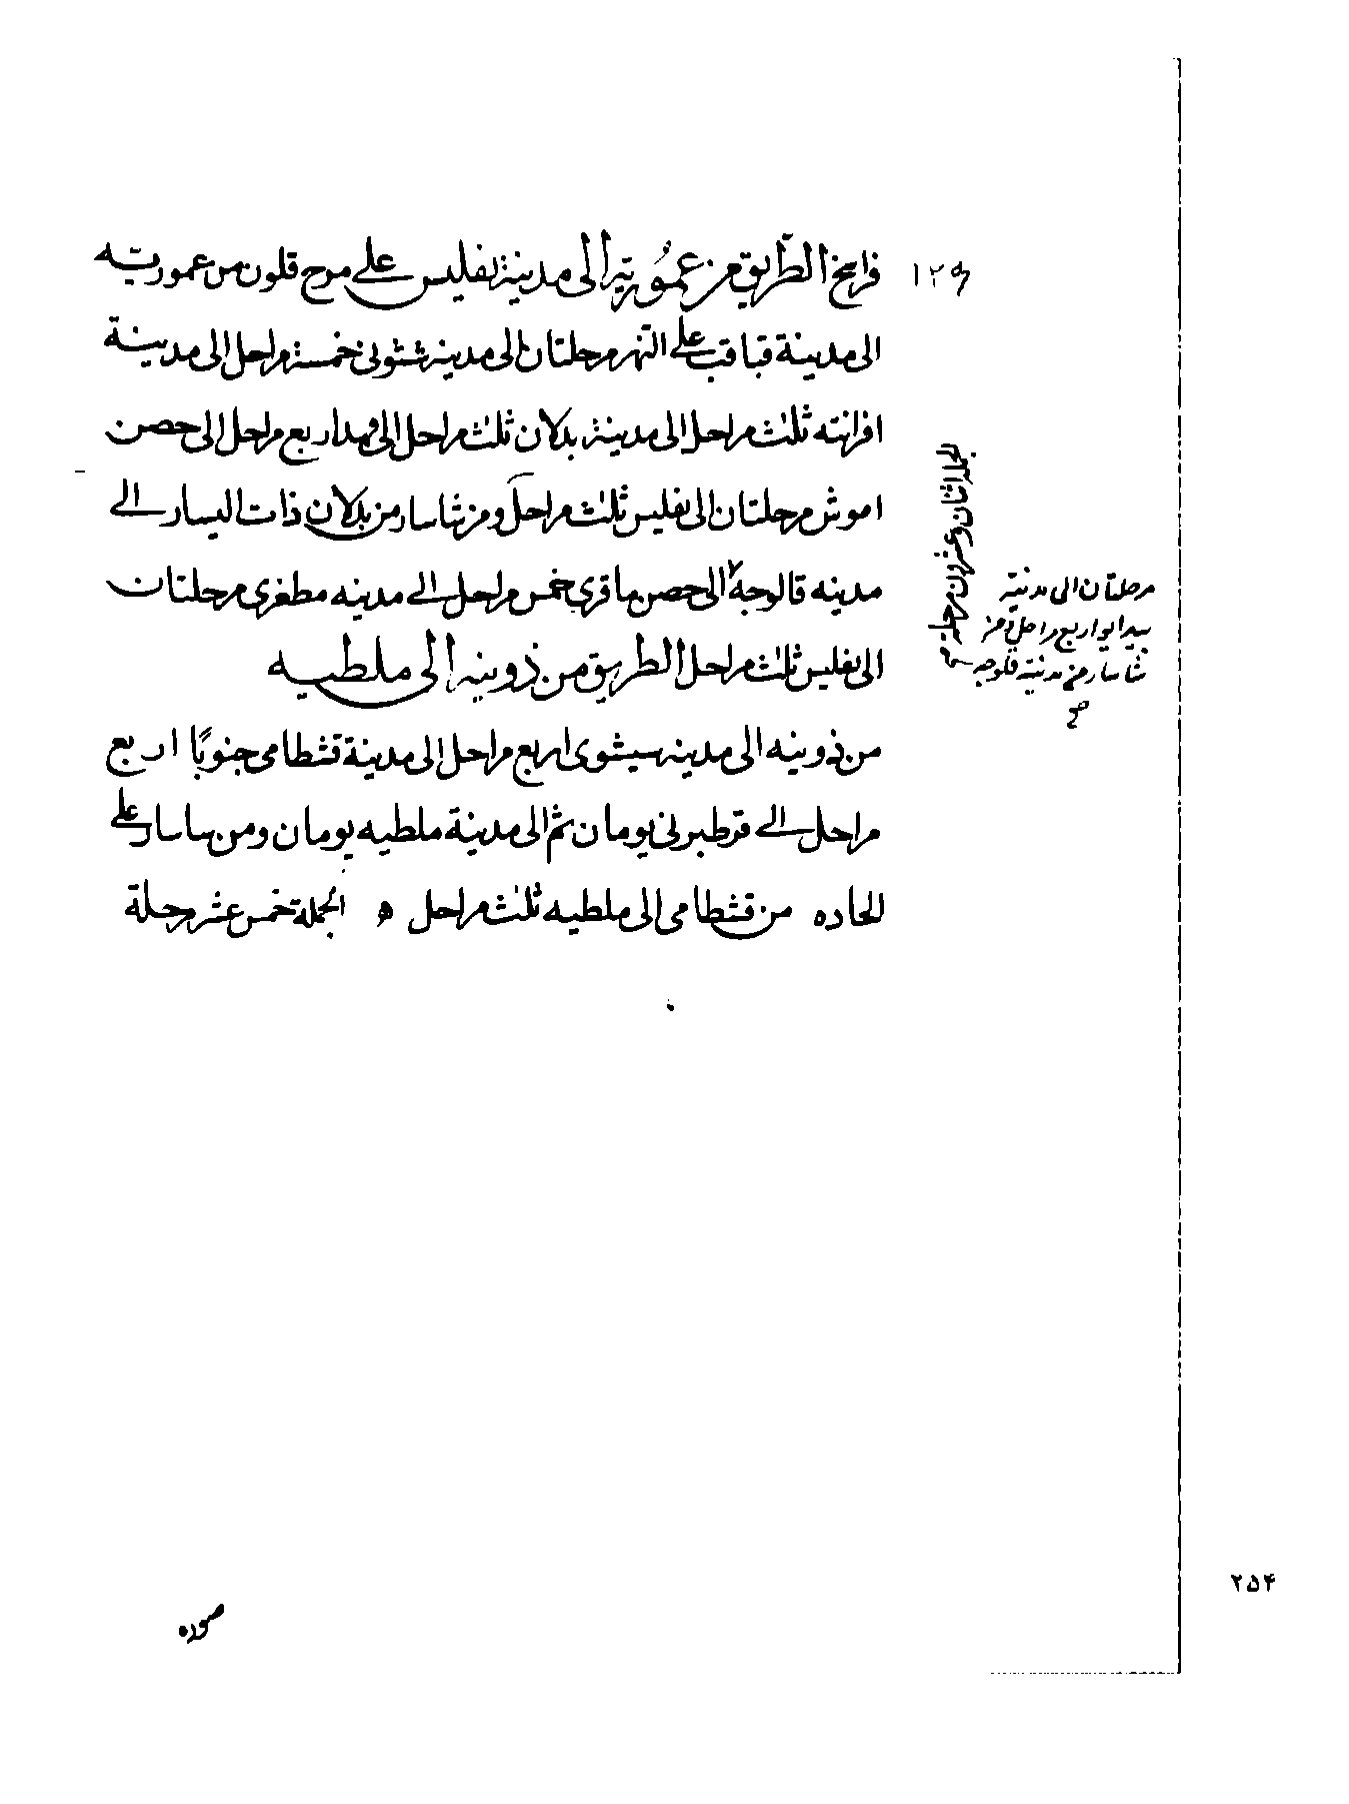 فراسخ الطريق من عمورية الى مدينة تفليس على مرج قلون من عمورية
الى مدينة قباقب على النهر مرحلتان الى مدينة شثونى خمسة مراحل الى مدينة
افرانته ثلث مراحل الى مدينة بدلان ثلث مراحل الى اربع مراحل الى حصن
اموش مرحلتان الى تفليس ثلث مراحل ومن شاسار من بدلان ذات اليسار الى
مدينه قالوجه الى حصن ماقرى خمس مراحل الى مدينه مطغرى مرحلتان
الى تفليس ثلث مراحل الطريق من ذوينه الى ملطيه
من ذوينه الى مدينه سيشوى اربع مراحل الى مدينة قشطامى جنوبًا اربع
مراحل الى قرطبرنى يومان ثم الى مدينة ملطيه يومان ومن ساسار على
الحاده من قشطامى الى ملطيه ثلث مراحل ه الجملة خمس عشر مرحلة
الجملة اثنان وعشرون مرحلة
مرحلتان الى مدنية
اربع مراحل ومن
شاسار من مدنية قلوجه
صح
صوره
۲۵۴